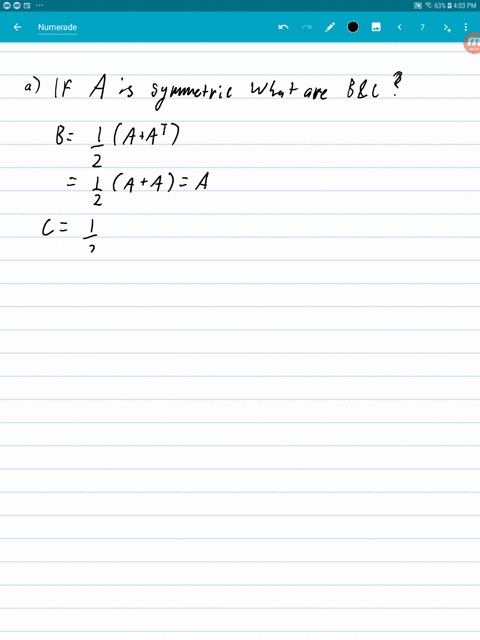 63% 4:03 PM
Numerade
7
a) If A is symmetric What are B&C?
B = 1/2 (A+Aᵀ)
= 1/2 (A + A) = A
C = 1/2